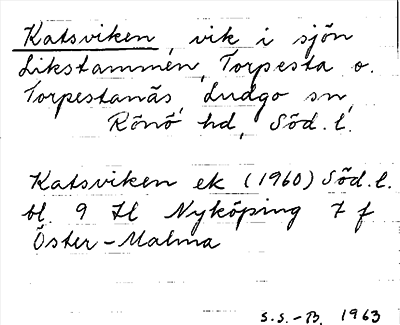 Katsviken, vik i sjön
Likstammen, Torpesta o.
Torpestanäs, Ludgo sn,
Rönö hd, Söd. l.
Katsviken ek (1960) Söd. l.
bl. 9 H Nyköping 7 f
Öster-Malma
S.S.-B. 1963